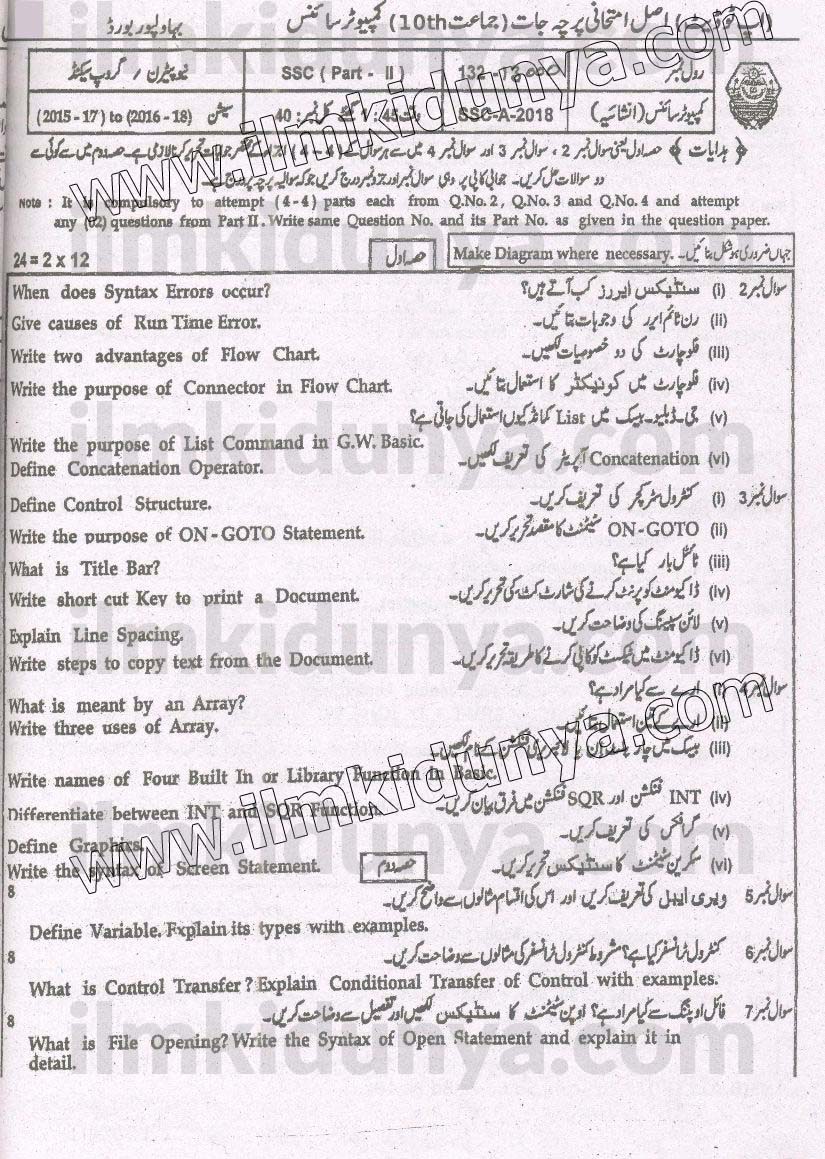 اصل امتحانی پرچہ جات (جماعت 10th) کمپیوٹر سائنس بہاولپور بورڈ
رول نمبر 132 SSC ( Part - II ) نیو پیٹرن / گروپ سیکنڈ
کمپیوٹر سائنس (انشائیہ) SSC-A-2018 وقت 1:45 گھنٹے کل نمبر : 40 سیشن (2015 - 17) to (2016 - 18)
﴿ ہدایات ﴾ حصہ اول یعنی سوال نمبر 2 ، سوال نمبر 3 اور سوال نمبر 4 میں سے ہر سوال کے (4 - 4) اجزاء کے مختصر جوابات تحریر کرنا لازمی ہے۔ حصہ دوم میں سے کوئی سے
دو سوالات حل کریں۔ جوابی کاپی پر وہی سوال نمبر اور جزو نمبر درج کریں جو کہ سوالیہ پرچہ پر درج ہے۔
Note : It is compulsory to attempt (4-4) parts each from Q.No.2, Q.No.3 and Q.No.4 and attempt
any (02) questions from Part II. Write same Question No. and its Part No. as given in the question paper.
24 = 2 x 12 حصہ اول Make Diagram where necessary. جہاں ضروری ہو شکل بنائیں۔
When does Syntax Errors occur? سوال نمبر 2 (i) سنٹیکس ایررز کب آتے ہیں؟
Give causes of Run Time Error. (ii) رن ٹائم ایرر کی وجوہات بتائیں۔
Write two advantages of Flow Chart. (iii) فلوچارٹ کی دو خصوصیات لکھیں۔
Write the purpose of Connector in Flow Chart. (iv) فلوچارٹ میں کونیکٹر کا استعمال بتائیں۔
(v) جی۔ڈبلیو۔بیسک میں List کمانڈ کیوں استعمال کی جاتی ہے؟
Write the purpose of List Command in G.W. Basic.
Define Concatenation Operator. (vi) Concatenation آپریٹر کی تعریف لکھیں۔
Define Control Structure. سوال نمبر 3 (i) کنٹرول سٹرکچر کی تعریف کریں۔
Write the purpose of ON-GOTO Statement. (ii) ON-GOTO سٹیٹمنٹ کا مقصد تحریر کریں۔
What is Title Bar? (iii) ٹائٹل بار کیا ہے؟
Write short cut Key to print a Document. (iv) ڈاکیومنٹ کو پرنٹ کرنے کی شارٹ کٹ کی تحریر کریں۔
Explain Line Spacing. (v) لائن سپیسنگ کی وضاحت کریں۔
Write steps to copy text from the Document. (vi) ڈاکیومنٹ میں ٹیکسٹ کو کاپی کرنے کا طریقہ تحریر کریں۔
What is meant by an Array? سوال نمبر 4 (i) ارے سے کیا مراد ہے؟
Write three uses of Array. (ii) ارے کے تین استعمال بتائیں۔
(iii) بیسک میں چار بلٹ ان یا لائبریری فنکشن کے نام لکھیں۔
Write names of Four Built In or Library Function in Basic.
Differentiate between INT and SQR Function. (iv) INT فنکشن اور SQR فنکشن میں فرق بیان کریں۔
Define Graphics. (v) گرافکس کی تعریف کریں۔
Write the syntax of Screen Statement. حصہ دوم (vi) سکرین سٹیٹمنٹ کا سنٹیکس تحریر کریں۔
8 سوال نمبر 5 ویری ایبل کی تعریف کریں اور اس کی اقسام مثالوں سے واضح کریں۔
Define Variable. Explain its types with examples.
8 سوال نمبر 6 کنٹرول ٹرانسفر کیا ہے؟ مشروط کنٹرول ٹرانسفر کی مثالوں سے وضاحت کریں۔
What is Control Transfer ? Explain Conditional Transfer of Control with examples.
8 سوال نمبر 7 فائل اوپننگ سے کیا مراد ہے؟ اوپن سٹیٹمنٹ کا سنٹیکس لکھیں اور تفصیل سے وضاحت کریں۔
What is File Opening? Write the Syntax of Open Statement and explain it in
detail.
www.ilmkidunya.com
www.ilmkidunya.com
ilmkidunya.com
ilmkidunya.com
ilmkidunya.com
ilmkidunya.com
ilmkidunya.com